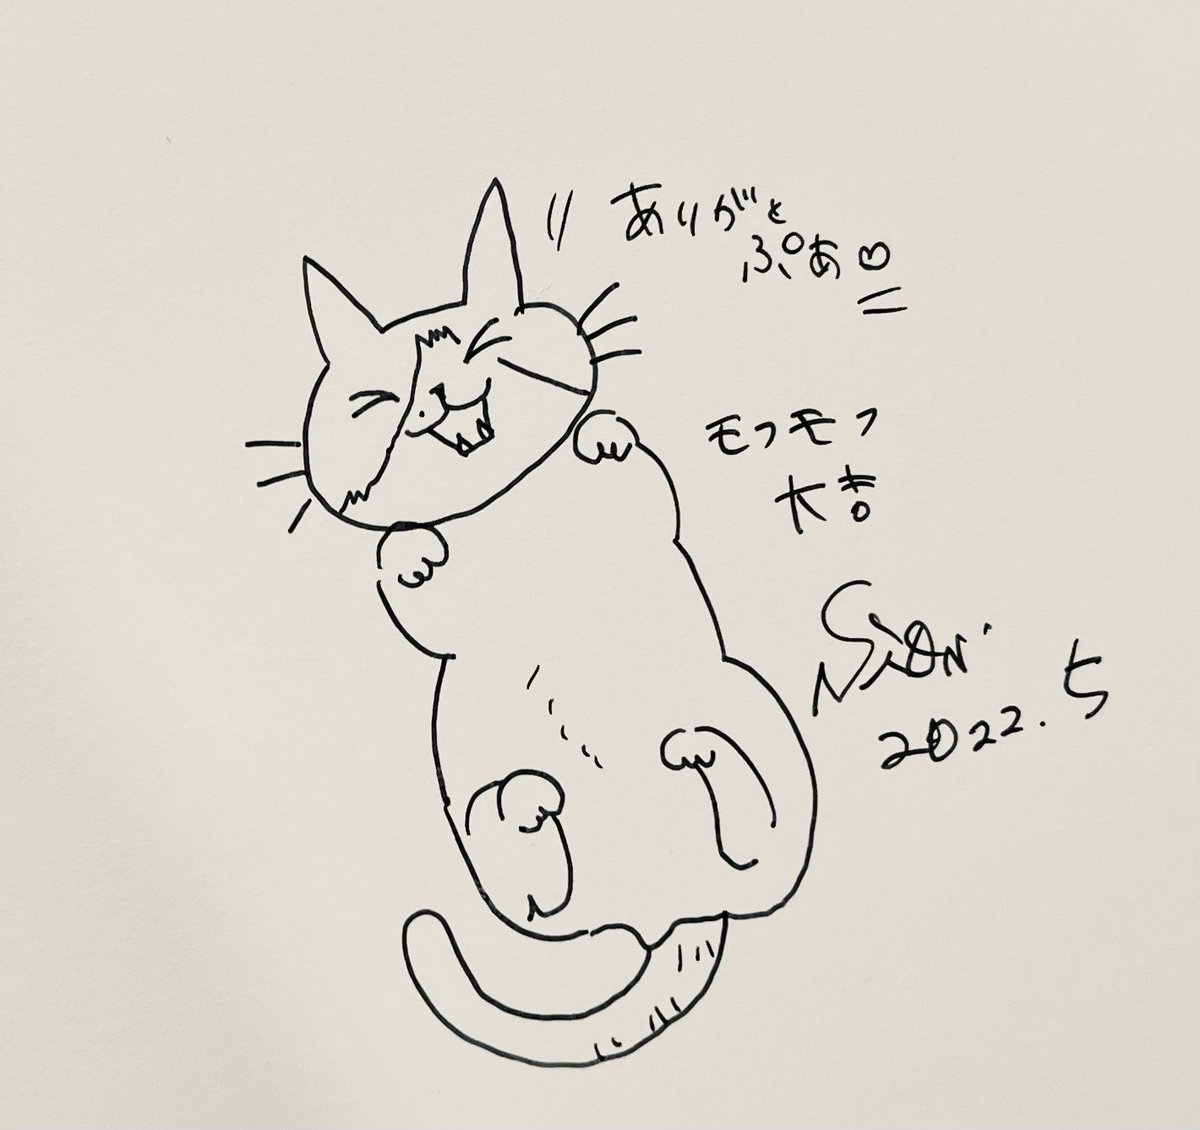 ありがと
ぷぁ♡
モフモフ
大吉
SiON
2022.5